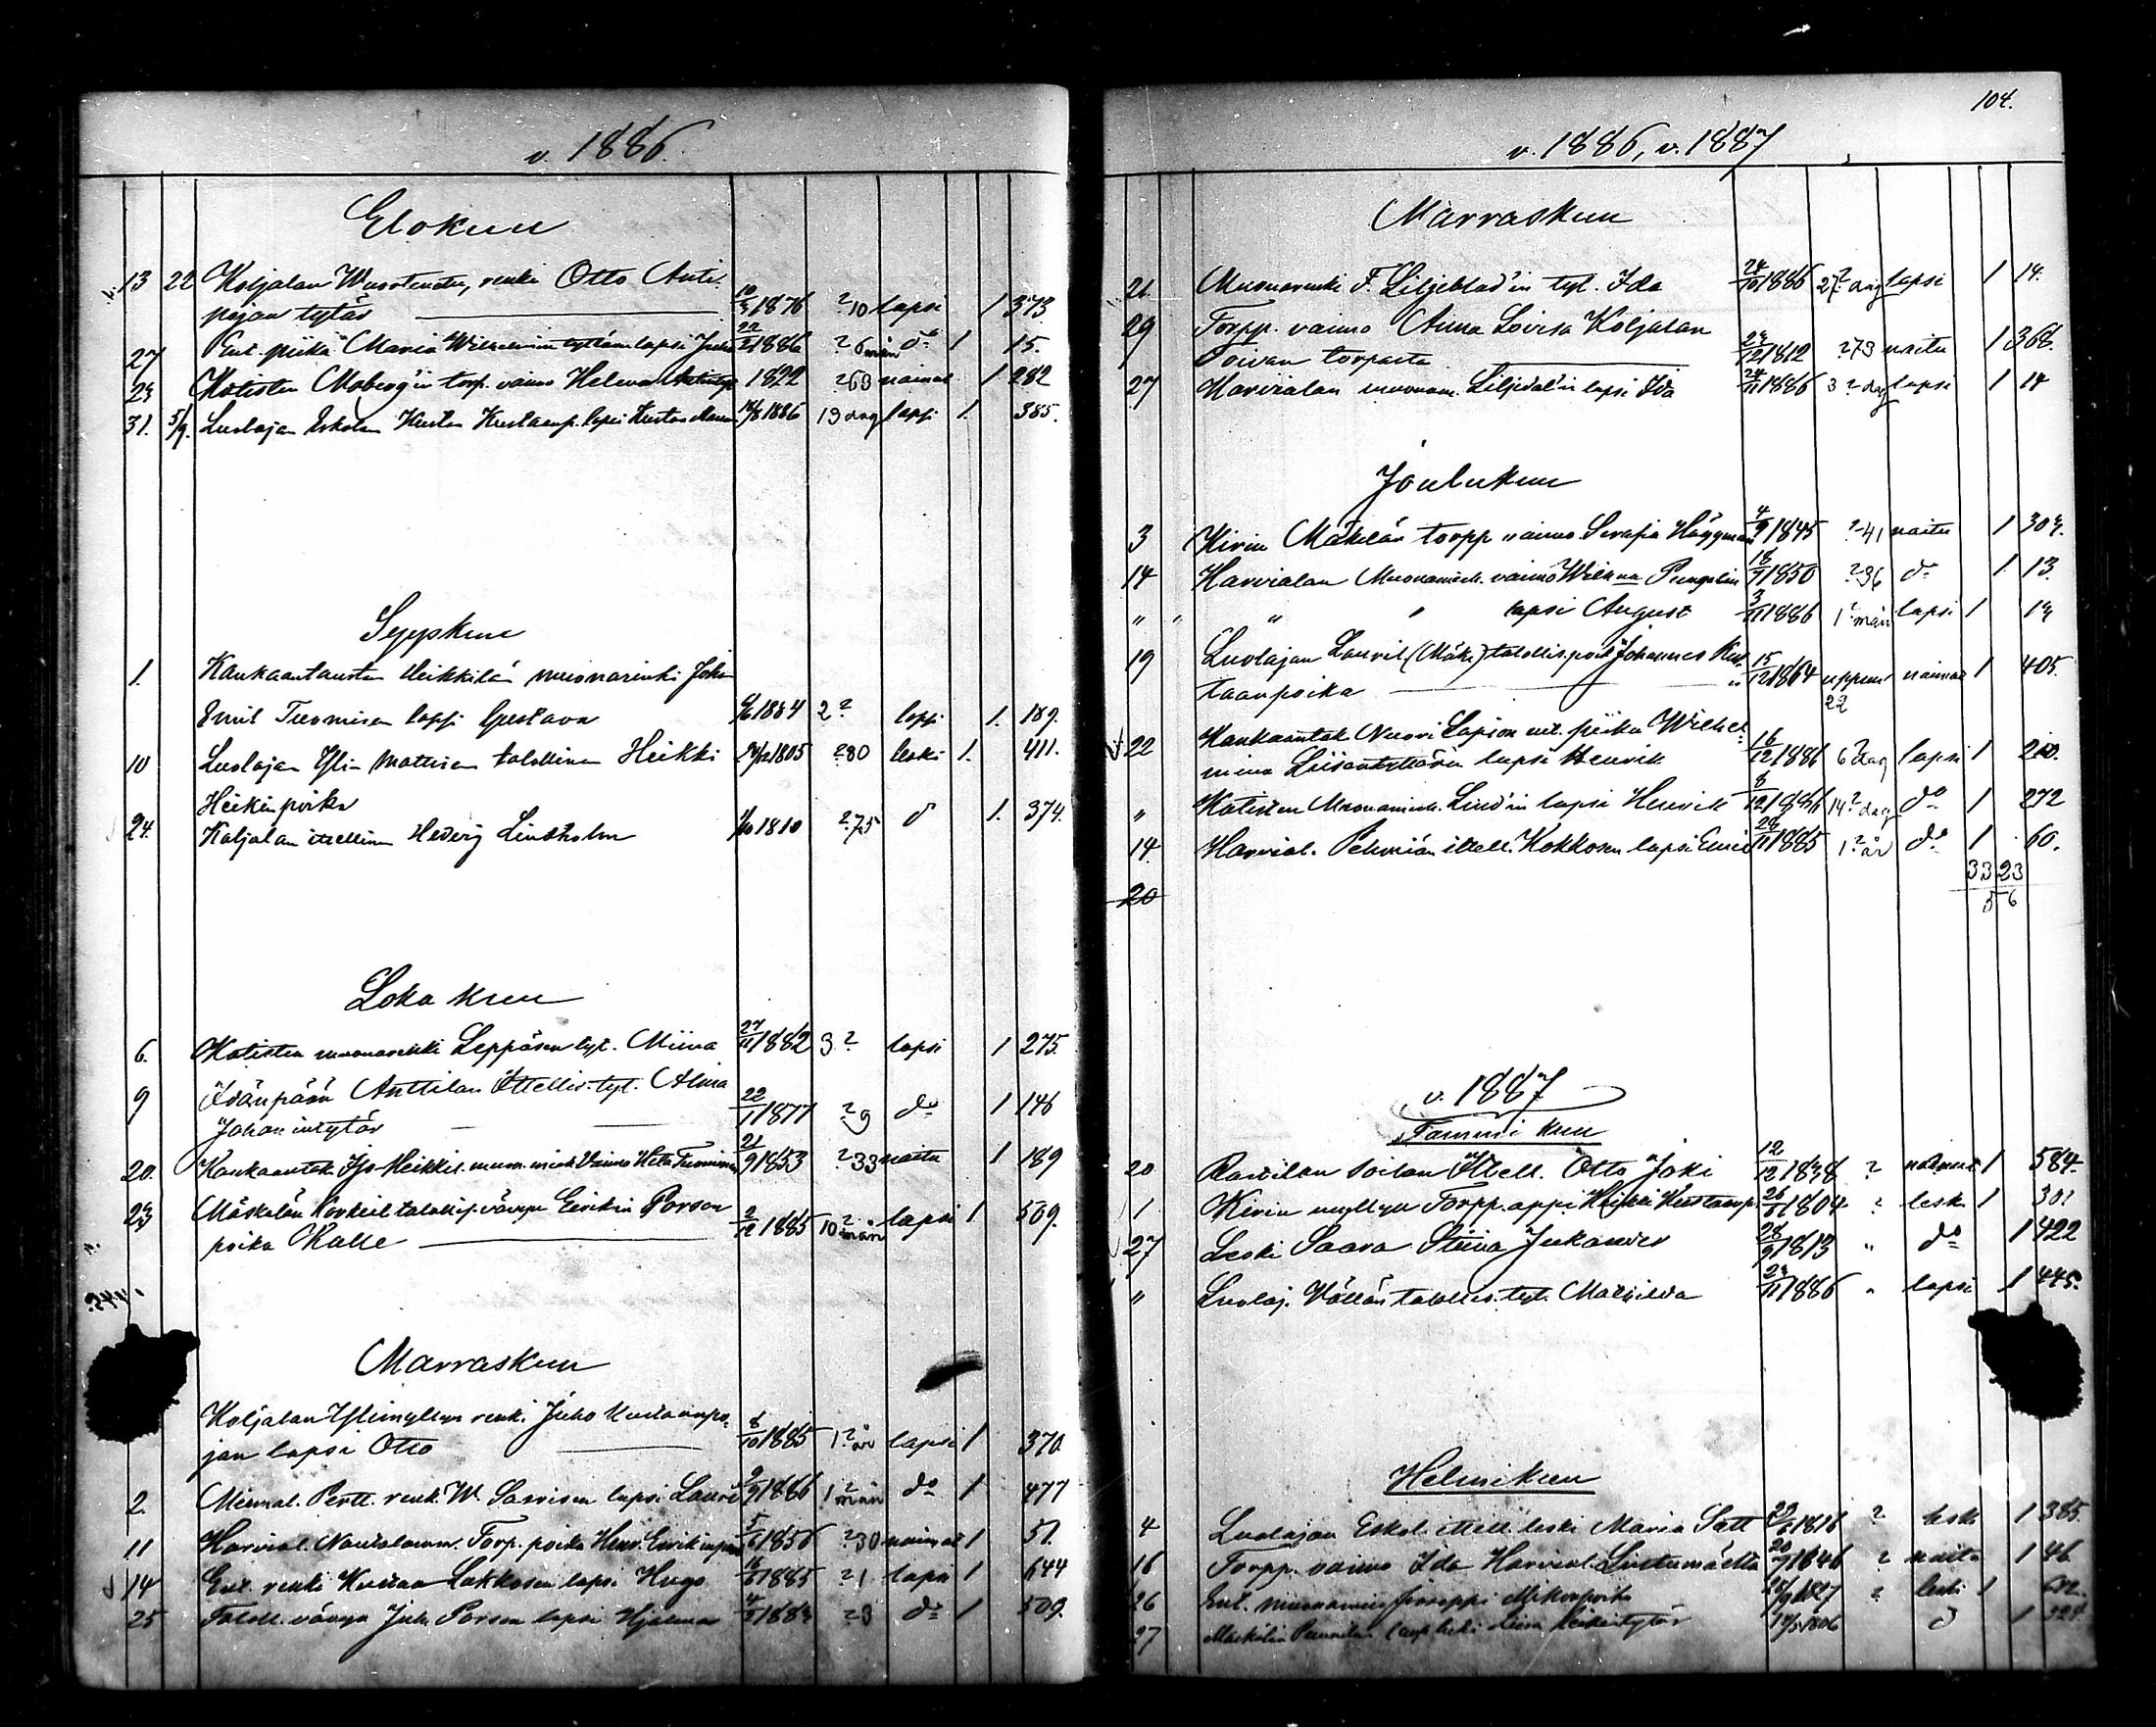 v. 1886.
Elokuu
13 22 Koljalan Wuostendu, renki Otto Anti-
pojan tytär 10/3 1876 ? 10 lapsi 1 373
27 Ent. piika Maria Wilhelmiin lapsi Juho 22/2 1886 ? 6 män do 1 15.
23 Kotisten Moberg'in torp. vaimo Helena 1822 ? 63 nainut 1 282
31. 5/9. Luolajan Eskolan Kustaa Kustaanp. lapsi Kustaa 1886 13 dag lapsi 1. 385.
Syyskuu
1. Kankaantaustan Heikkilän muonarenki Joha
Emil Tuomisen lapsi Gustava 1884 2? lapsi 1. 189.
10 Luolajan Yli-Mattisen talollinen Heikki 1805 ? 80 leski 1. 411.
Heikinpoika
24. Koljalan itsellinen Hedvig Lindholm 1/10 1810 ? 75 d 1. 374.
Loka kuu
6. Kotisten muonarenki Leppäsen tyt. Miina 27/11 1882 3? lapsi 1 275.
9 Idänpään Anttilan Ittellis. tyt. Alma
Johanintytär 22/1 1877 ? 9 do 1 146
20. Kankaantak. Iso-Heikkil. muon. mieh. Vaimo Heta Tuominen 21/9 1853 ? 33 naitu 1 189
23 Mäskälän Korkeil. talollis. vävyn Eerikin Porson
poika Kalle 2/12 1885 10? män lapsi 1 509.
Marraskuu
Koljalan Ylimyllyn renki Juho Kustaanpo-
jan lapsi Otto 8/10 1885 1? år lapsi 1 370.
2. Miemal. Pertt. renk. W. Saarisen lapsi Lauri 2/9 1886 1? män do 1 477
11 Harvial. Torp. poika Henr. Eerikinpoika 5/6 1856 ? 30 nainut 1 51.
14 Ent. renki Kustaa Lakkosen lapsi Hugo 16/6 1885 ? 1 lapsi 1 644
25 Taloll. vävyn Juh. Porson lapsi Hjalmar 1883 ? 3 do 1 509.
104.
v. 1886, v. 1887
Marraskuu
21. Muonarenki F. Liljeblad'in tyt. Ida 24/10 1886 27? dag lapsi 1 14.
29 Torpp. vaimo Anna Lovisa Koljalan
Toivan torpasta 23/12 1812 ? 73 naitu 1 368.
27 Harvialan muonam. Liljedal'in lapsi Ida 24/11 1886 3? dag lapsi 1 14
Joulukuu
3 Kirin Mäkelän torpp. vaimo Serafia Häggman 4/9 1845 ? 41 naitu 1 303.
14 Harvialan Muonamieh. vaimo Wilhma 18/9 1850 ? 36 do 1 13.
" " " " lapsi August 3/11 1886 1? män lapsi 1 13
19 Luolajan Lauril. (Mäki) talollis. poik. Johannes Kus-
taanpoika 15/12 1864 uppem. 22 nainut 1 405.
22 Kankaantak. Nuori Lapion ent. piika Wilhel-
mina Liisantyttären lapsi Henrik 16/12 1886 6? dag lapsi 1 210.
" Kotisten Muonamieh. Lind'in lapsi Henrik 8/12 1886 14? dag do 1 272
14. Harvial. Pehmiän ittell. Kokkosen lapsi Emil 28/11 1885 1? år do 1 60.
33 23
20 56
v. 1887
Tammi kuu
20 Raivilan Soilan Ittell. Otto Joki 12/12 1838 ? nainut 1 584.
1 Kirin myllyn Torpp. appi Heikki Kustaanp. 26/6 1804 ? lesk. 1 301
27 Leski Saara Stiina Jukander 28/9 1813 " do 1 422
" Luolaj. Völlän talollis. tyt. Mathilda 23/11 1886 " lapsi 1 445.
Helmikuu
4 Luolajan Eskol. ittell. leski Maria Sätt 1816 ? lesk. 1 385.
16 Torpp. vaimo Ida Harvial. 20/7 1846 ? naitu 1 46.
26 Ent. muonamies Jooseppi Mikonpoika 1827 ? leski 1
27 Mäskälän leski Liisa 1806 d 1